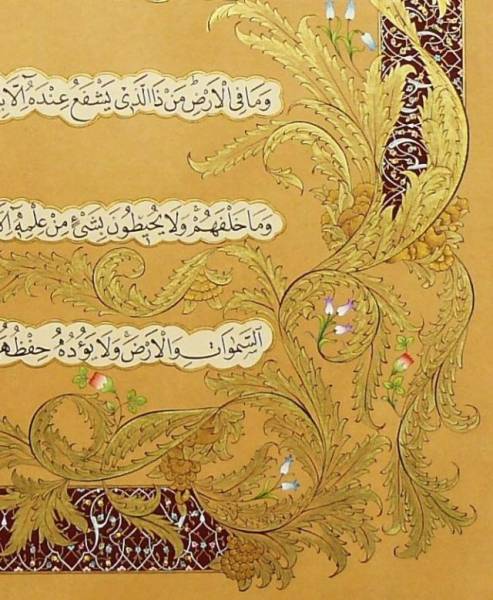 وَمَا فِي الْاَرْضِ مَنْ ذَا الَّذِي يَشْفَعُ عِنْدَهُ اِلَّا
وَمَا خَلْفَهُمْ وَلَا يُحِيطُونَ بِشَيْءٍ مِنْ عِلْمِهِ
السَّمٰوَاتِ وَالْاَرْضَ وَلَا يَؤُدُهُ